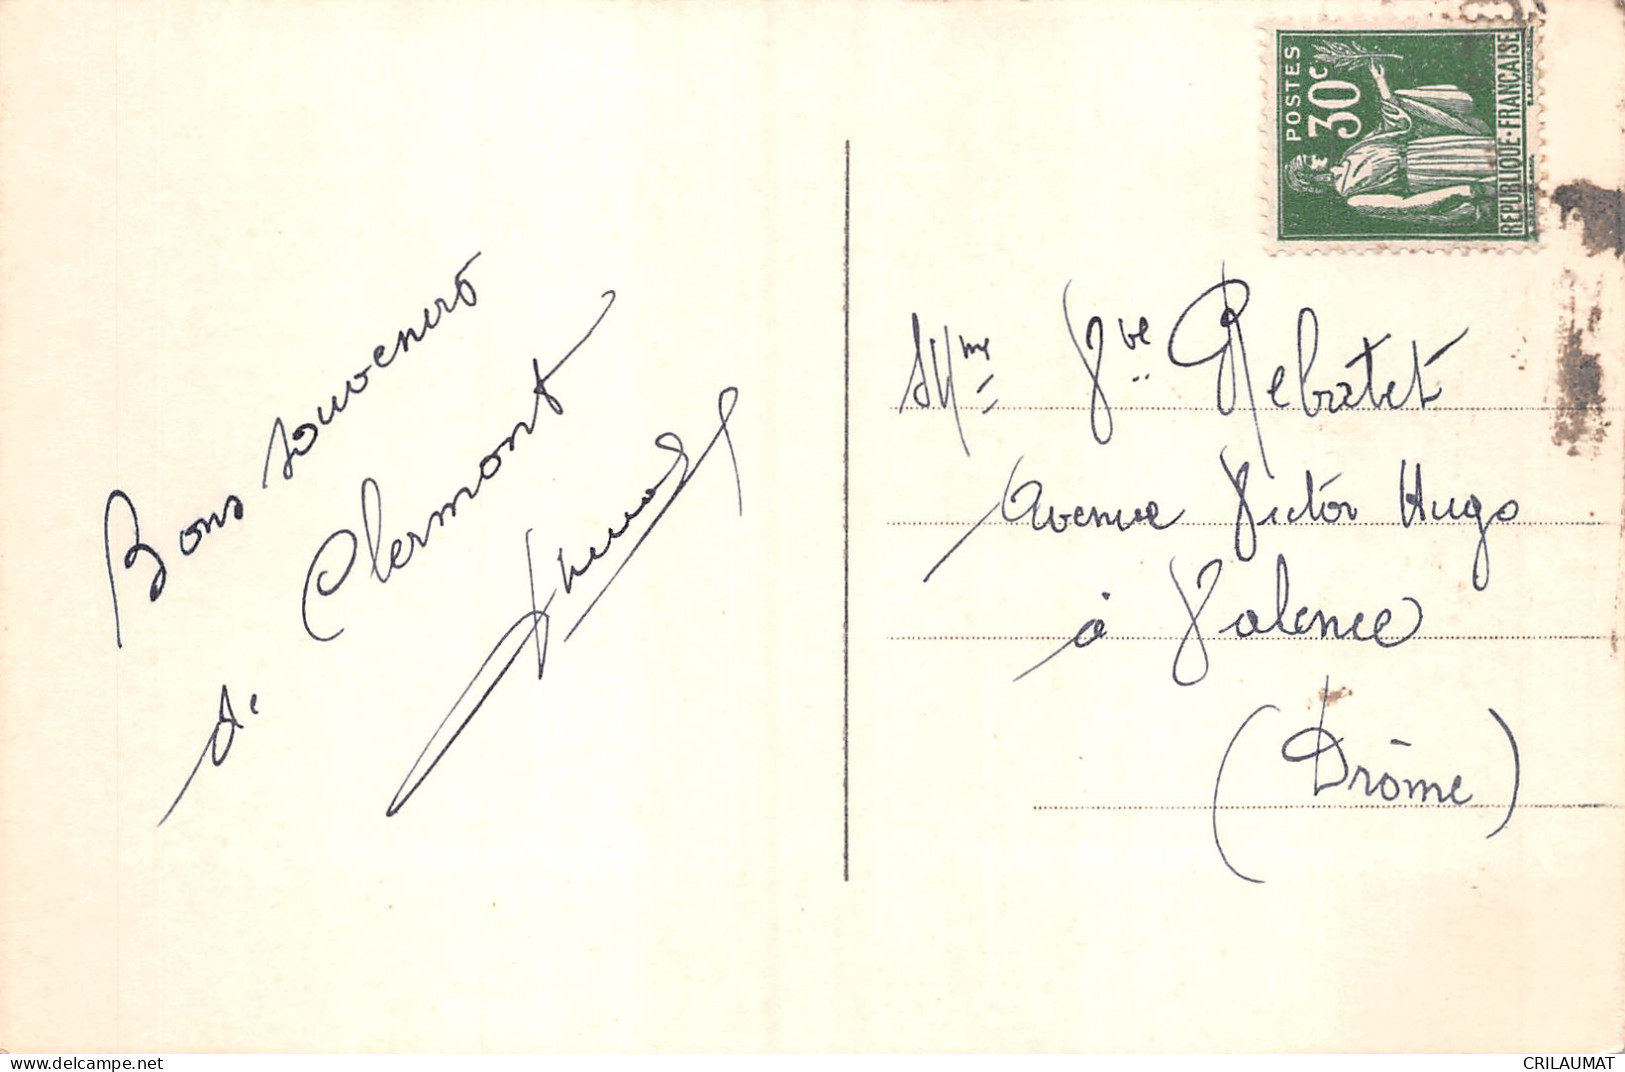 Bons souvenirs
de Clermont
POSTES
30c
REPUBLIQUE·FRANCAISE
Mme Vve Rebatet
Avenue Victor Hugo
à Valence
(Drôme)
www.delcampe.net
CRILAUMAT